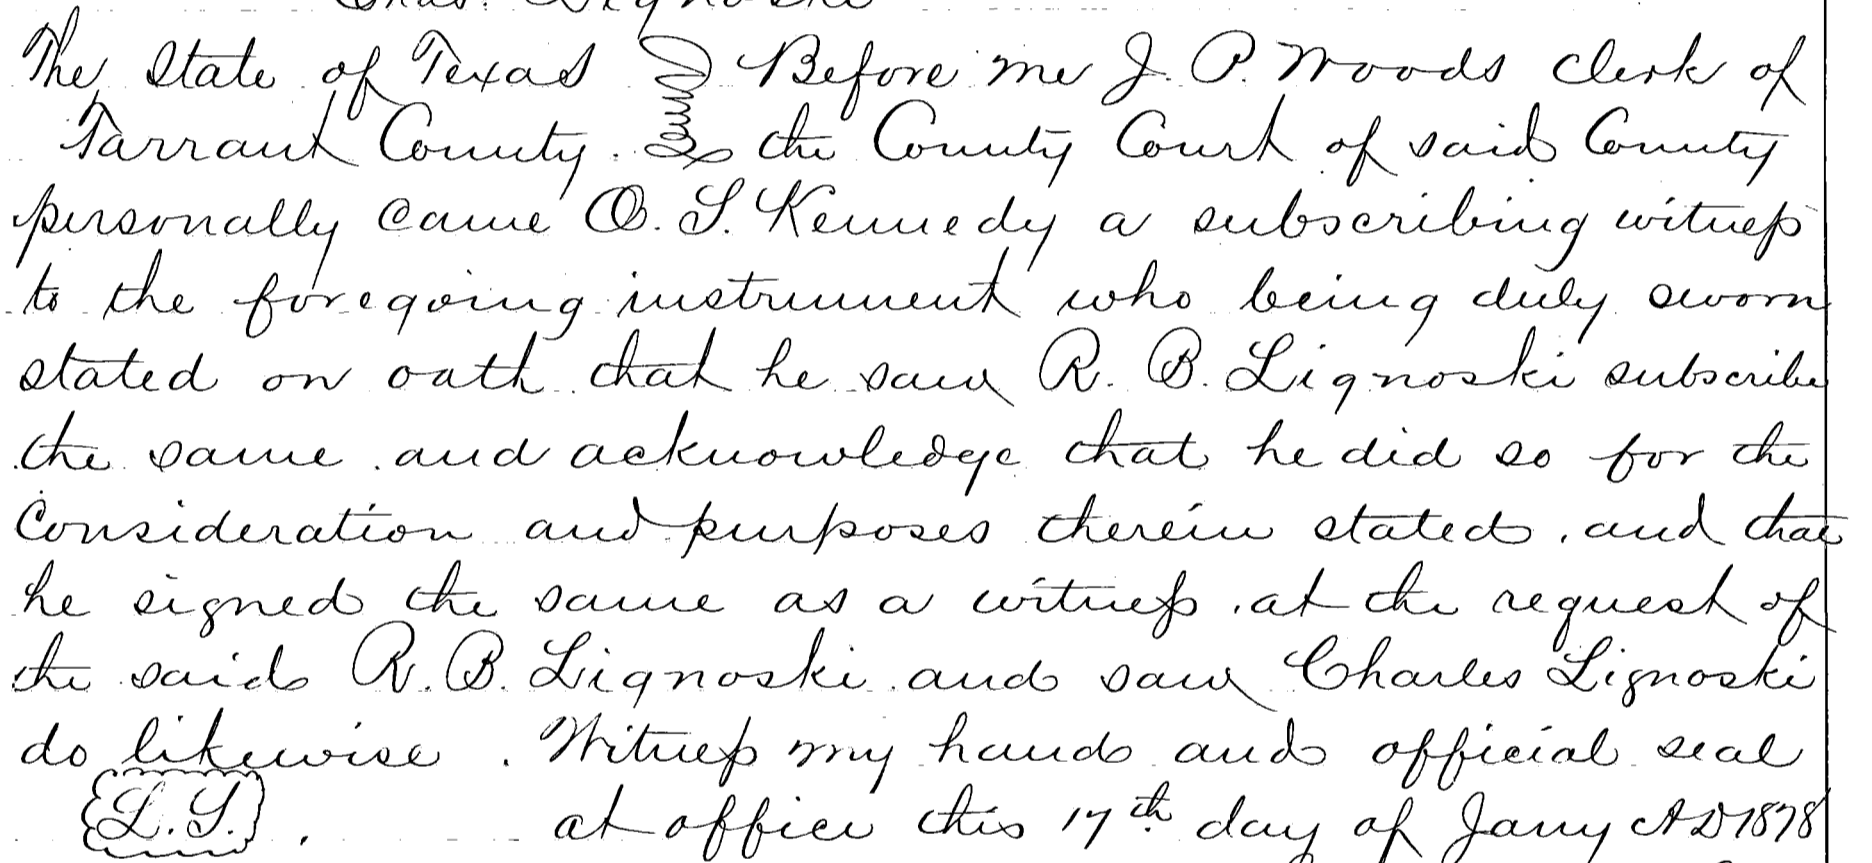 Chas. Lignoski
The State of Texas } Before me J. P. Woods Clerk of
Tarrant County. } the County Court of said County
personally came O. S. Kennedy a subscribing witness
to the foregoing instrument who being duly sworn
stated on oath that he saw R. B. Lignoski subscribe
the same and acknowledge that he did so for the
Consideration and purposes therein stated, and that
he signed the same as a witness at the request of
the said R. B. Lignoski and saw Charles Lignoski
do likewise. Witness my hand and official seal
L.S. at office this 17th day of Jany AD 1878